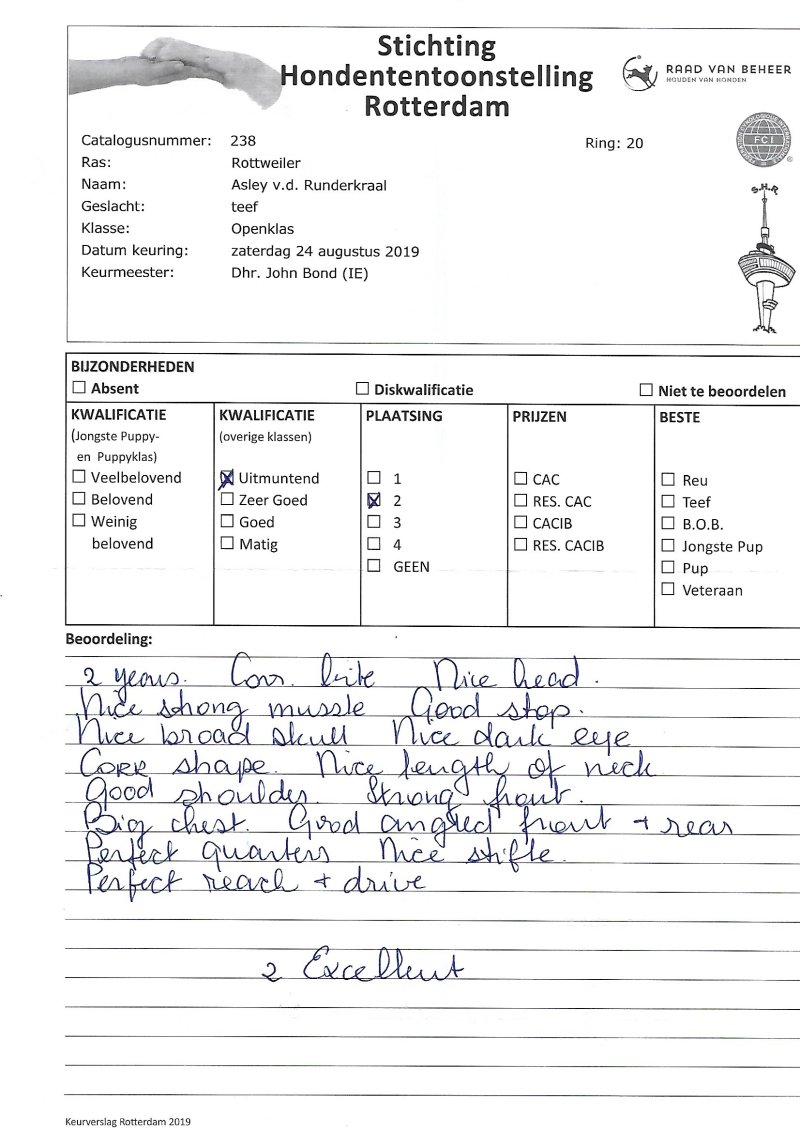 Stichting
Hondententoonstelling
Rotterdam
RAAD VAN BEHEER
HOUDEN VAN HONDEN
FCI
S.H.R
Catalogusnummer: 238 Ring: 20
Ras: Rottweiler
Naam: Asley v.d. Runderkraal
Geslacht: teef
Klasse: Openklas
Datum keuring: zaterdag 24 augustus 2019
Keurmeester: Dhr. John Bond (IE)
BIJZONDERHEDEN
Absent Diskwalificatie Niet te beoordelen
KWALIFICATIE
(Jongste Puppy-
en Puppyklas)
Veelbelovend
Belovend
Weinig
belovend
KWALIFICATIE
(overige klassen)
Uitmuntend
Zeer Goed
Goed
Matig
PLAATSING
1
2
3
4
GEEN
PRIJZEN
CAC
RES. CAC
CACIB
RES. CACIB
BESTE
Reu
Teef
B.O.B.
Jongste Pup
Pup
Veteraan
Beoordeling:
2 years. Corr. bite Nice head.
Nice strong mussle Good stop.
Nice broad skull Nice dark eye
Corr shape. Nice length of neck
Good shoulder. Strong front.
Big chest. Good angled front + rear
Perfect quarters Nice stifle.
Perfect reach + drive
2 Excellent
Keurverslag Rotterdam 2019